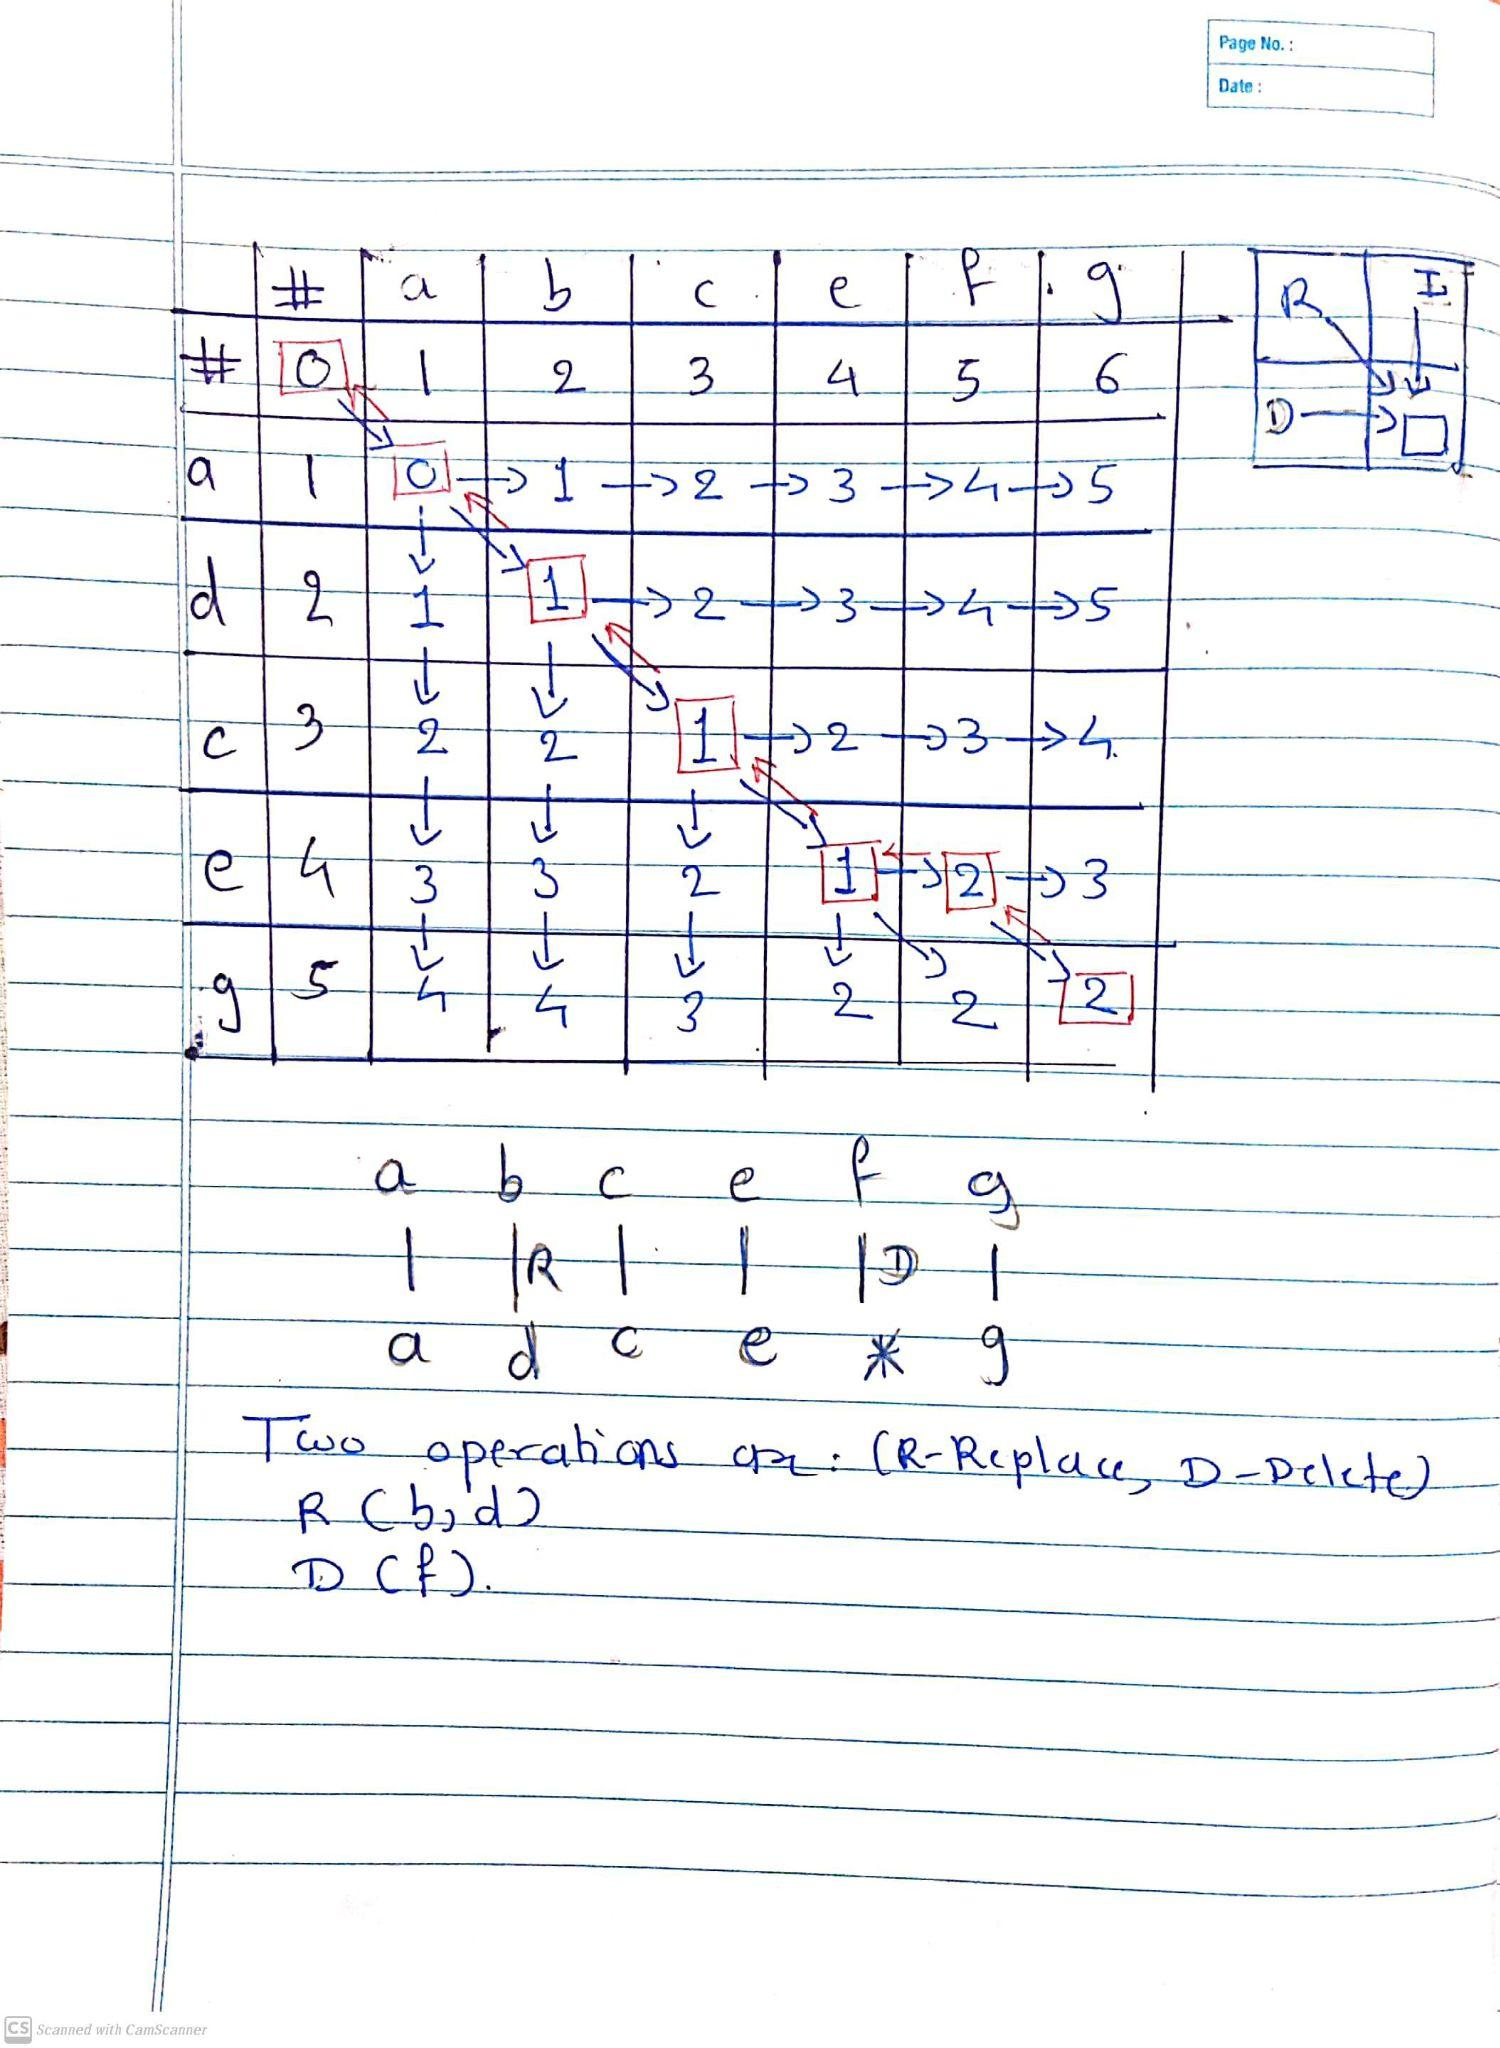 Page No. :
Date :
# a b c e f g
# 0 1 2 3 4 5 6
a 1 0 → 1 → 2 → 3 → 4 → 5
d 2 1 1 → 2 → 3 → 4 → 5
c 3 2 2 1 → 2 → 3 → 4
e 4 3 3 2 1 → 2 → 3
g 5 4 4 3 2 2 2
R I
D →
a b c e f g
| |R | | |D |
a d c e * g
Two operations are: (R-Replace, D-Delete)
R (b,d)
D (f).
CS Scanned with CamScanner